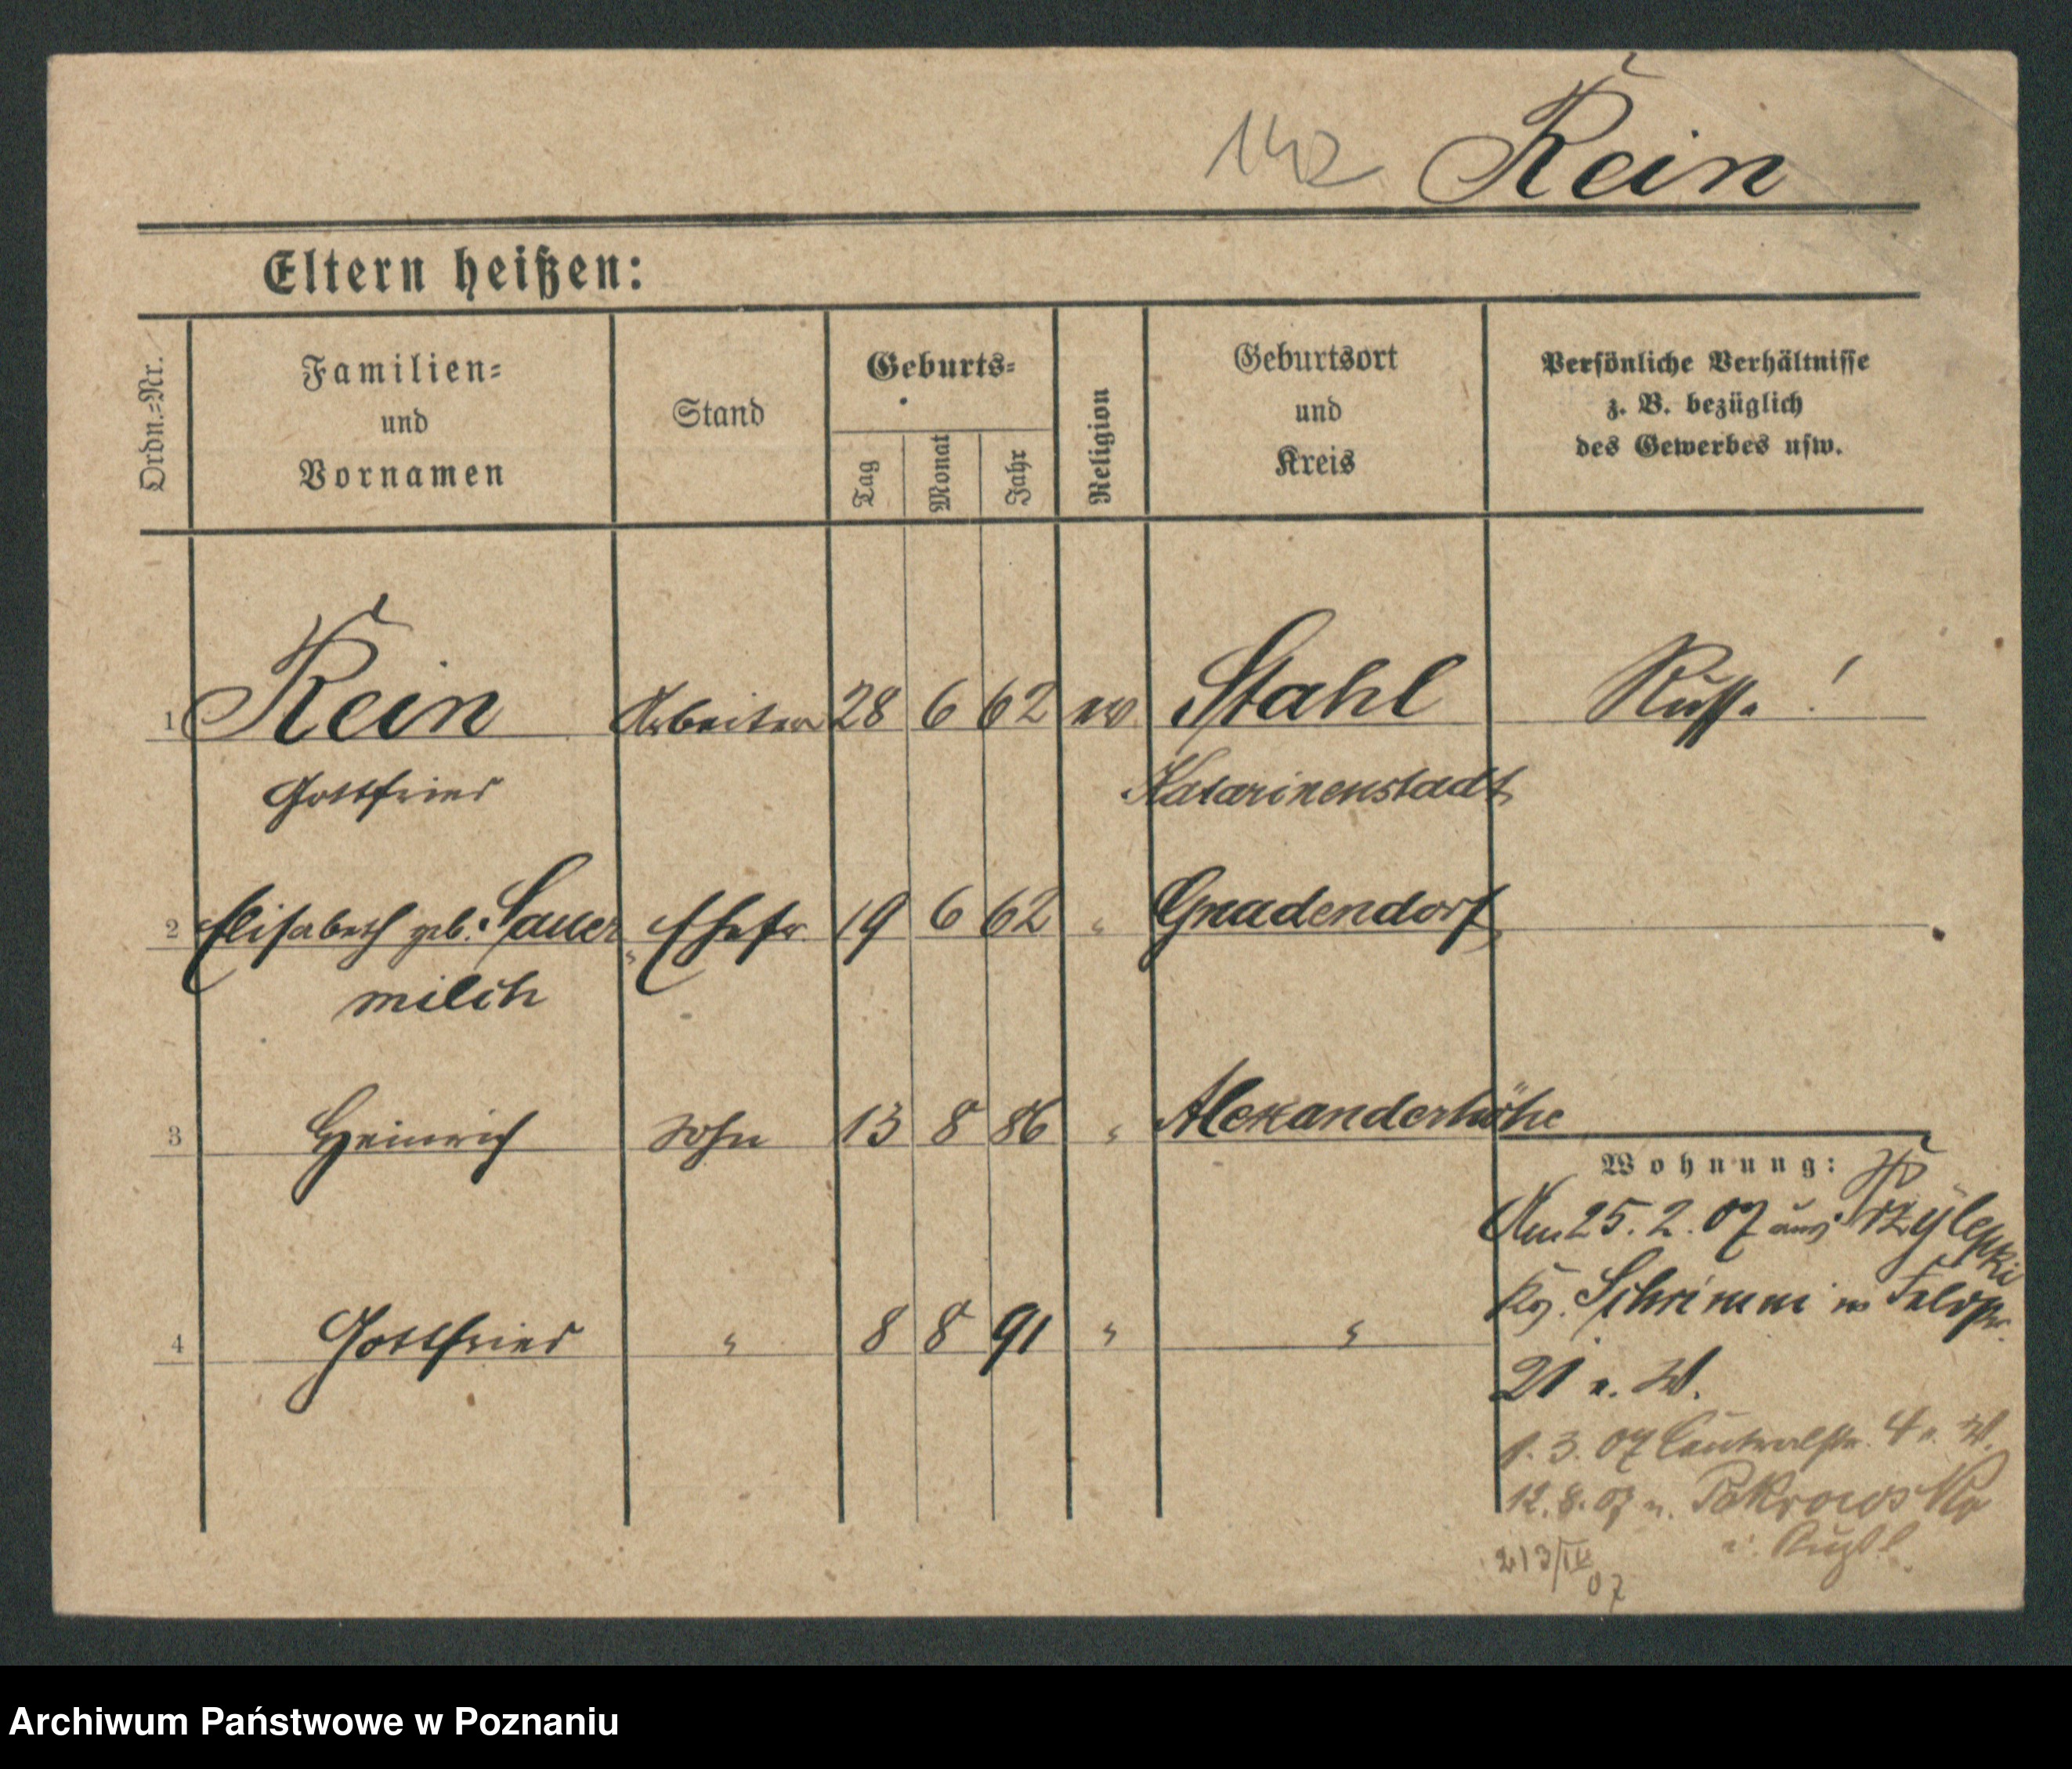 142 Rein
Eltern heißen:
Ordn.=Nr.
Familien=
und
Vornamen
Stand
Geburts=
Tag
Monat
Jahr
Religion
Geburtsort
und
Kreis
Persönliche Verhältnisse
z. B. bezüglich
des Gewerbes usw.
1 Rein Arbeiter 28 6 62 ev. Stahl Russe!
Gottfried Katarinenstadt
2 Elisabeth geb. Sauer Ehefr. 19 6 62 " Gnadendorf
milch
3 Heinrich Sohn 13 8 86 " Alexanderhöhe
Wohnung:
Am 25. 2. 07 aus Przylepki
Kr. Schrimm n. Feldstr.
4 Gottfried " 8 8 91 " "
21 b. W.
1. 3. 07 Centralstr. 4 b. W.
12. 8. 07 n. Pokrowsk
i. Rußl.
213/IV
07